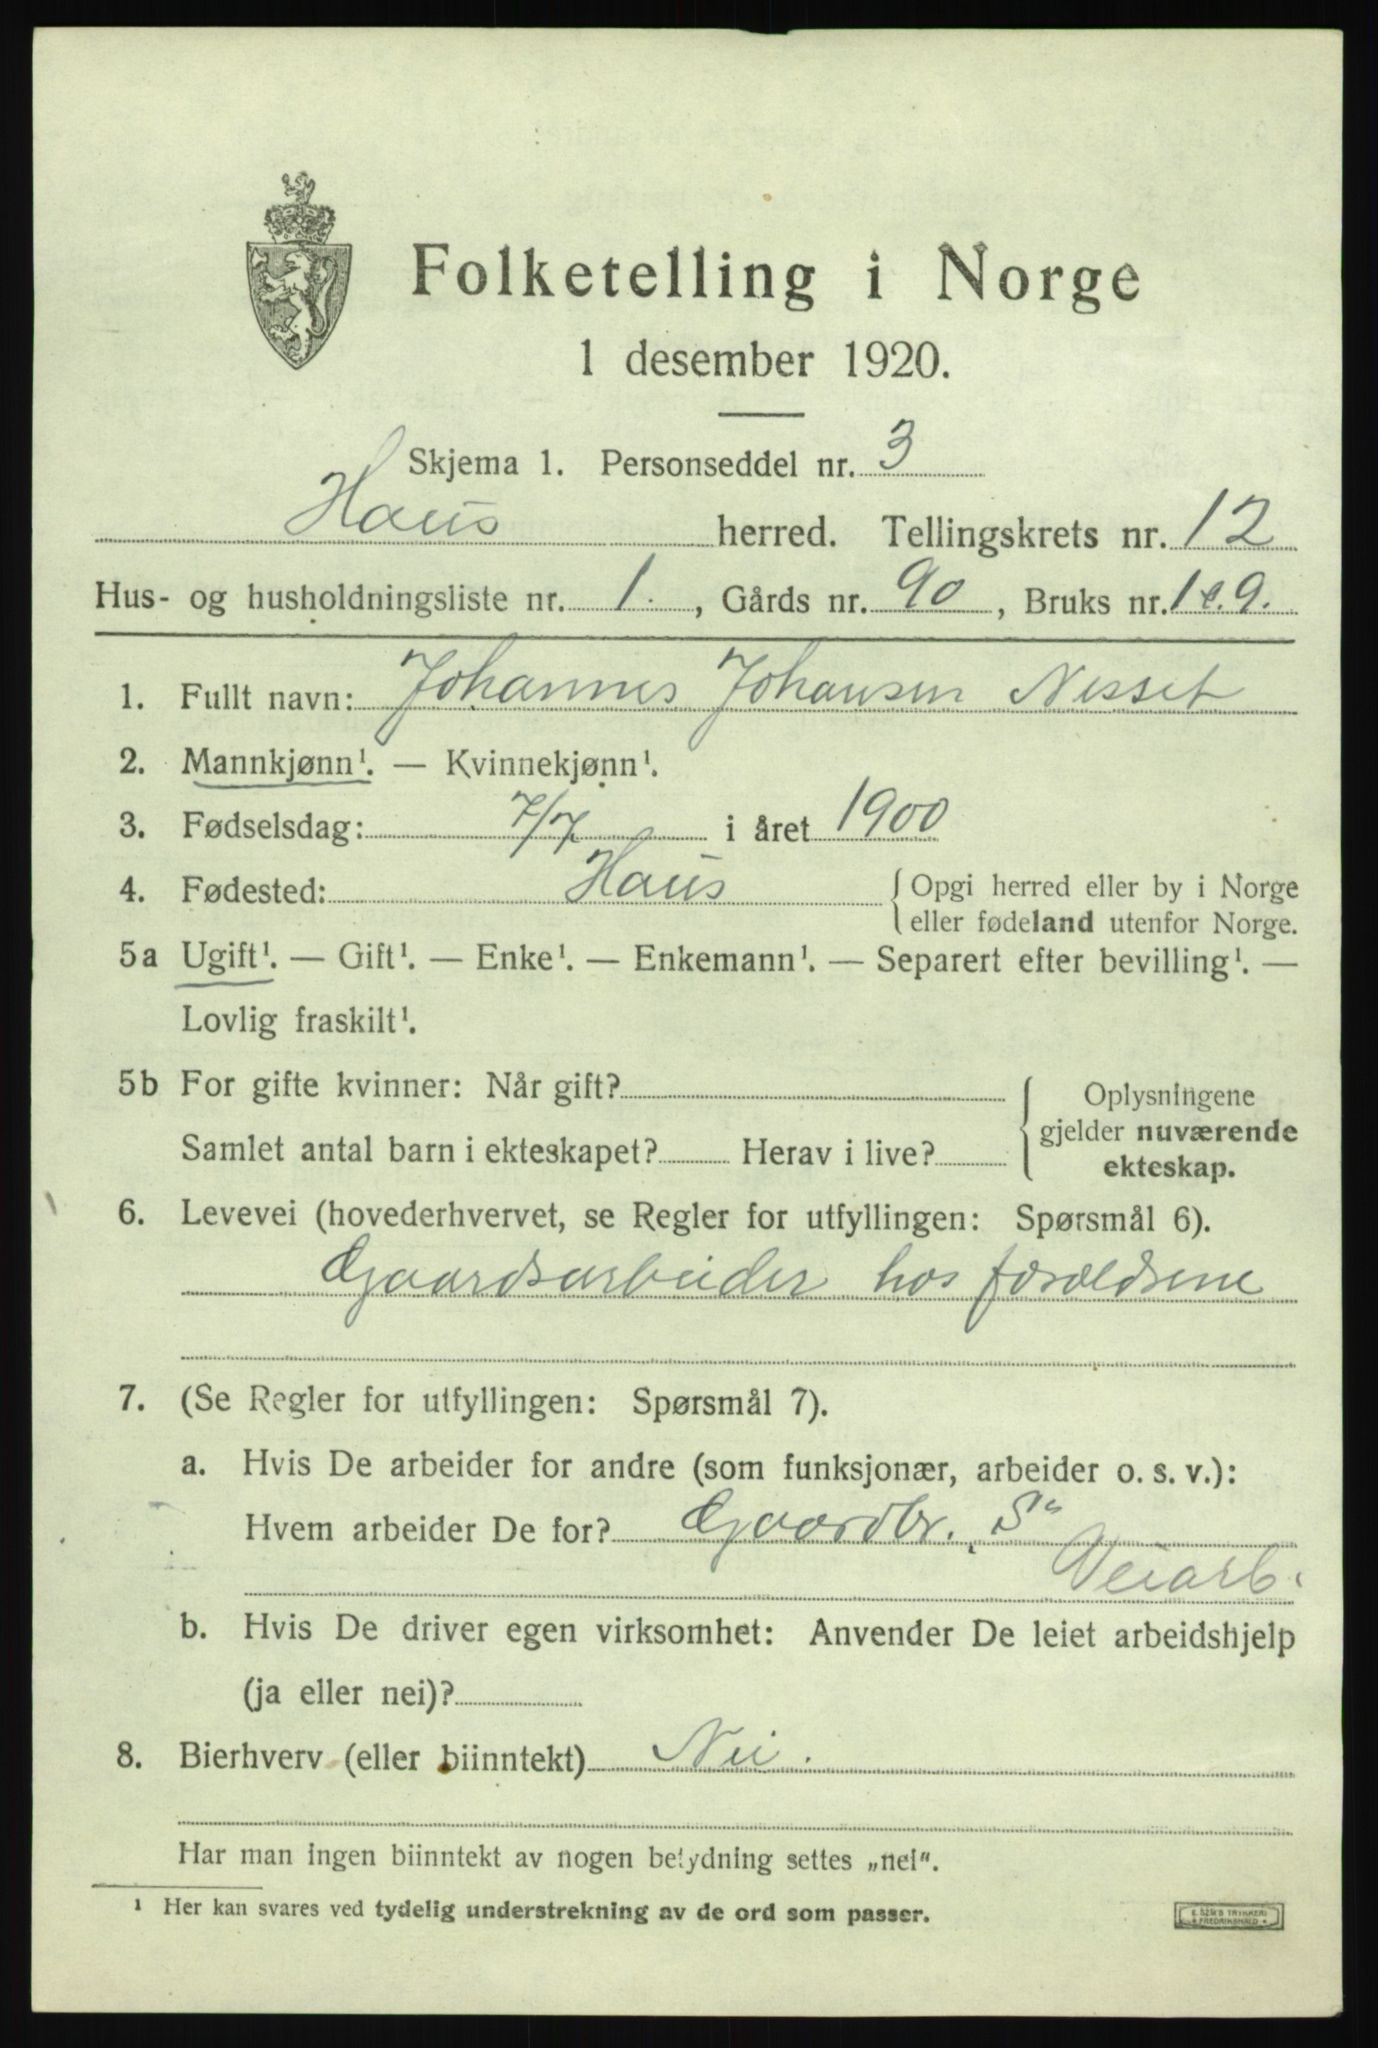 Folketelling i Norge
1 desember 1920.
Skjema 1. Personseddel nr. 3
Haus herred. Tellingskrets nr. 12
Hus- og husholdningsliste nr. 1. , Gårds nr. 90 , Bruks nr. 1 & 9.
1. Fullt navn: Johannes Johansen Nesset
2. Mannkjønn¹. — Kvinnekjønn¹.
3. Fødselsdag: 7/7 i året 1900
4. Fødested: Haus { Opgi herred eller by i Norge
eller fødeland utenfor Norge.
5a Ugift¹. — Gift¹. — Enke¹. — Enkemann¹. — Separert efter bevilling¹. —
Lovlig fraskilt¹.
5b For gifte kvinner: Når gift?
Samlet antal barn i ekteskapet? Herav i live?
Oplysningene
gjelder nuværende
ekteskap.
6. Levevei (hovederhvervet, se Regler for utfyllingen: Spørsmål 6).
Gaardsarbeider hos forældrene
7. (Se Regler for utfyllingen: Spørsmål 7).
a. Hvis De arbeider for andre (som funksjonær, arbeider o. s. v.):
Hvem arbeider De for? Gaardbr.
Veiarb.
b. Hvis De driver egen virksomhet: Anvender De leiet arbeidshjelp
(ja eller nei)?
8. Bierhverv (eller biinntekt) Nei.
Har man ingen biinntekt av nogen betydning settes „nei“.
¹ Her kan svares ved tydelig understrekning av de ord som passer.
E. SEM'S TRYKKERI
FREDRIKSHALD